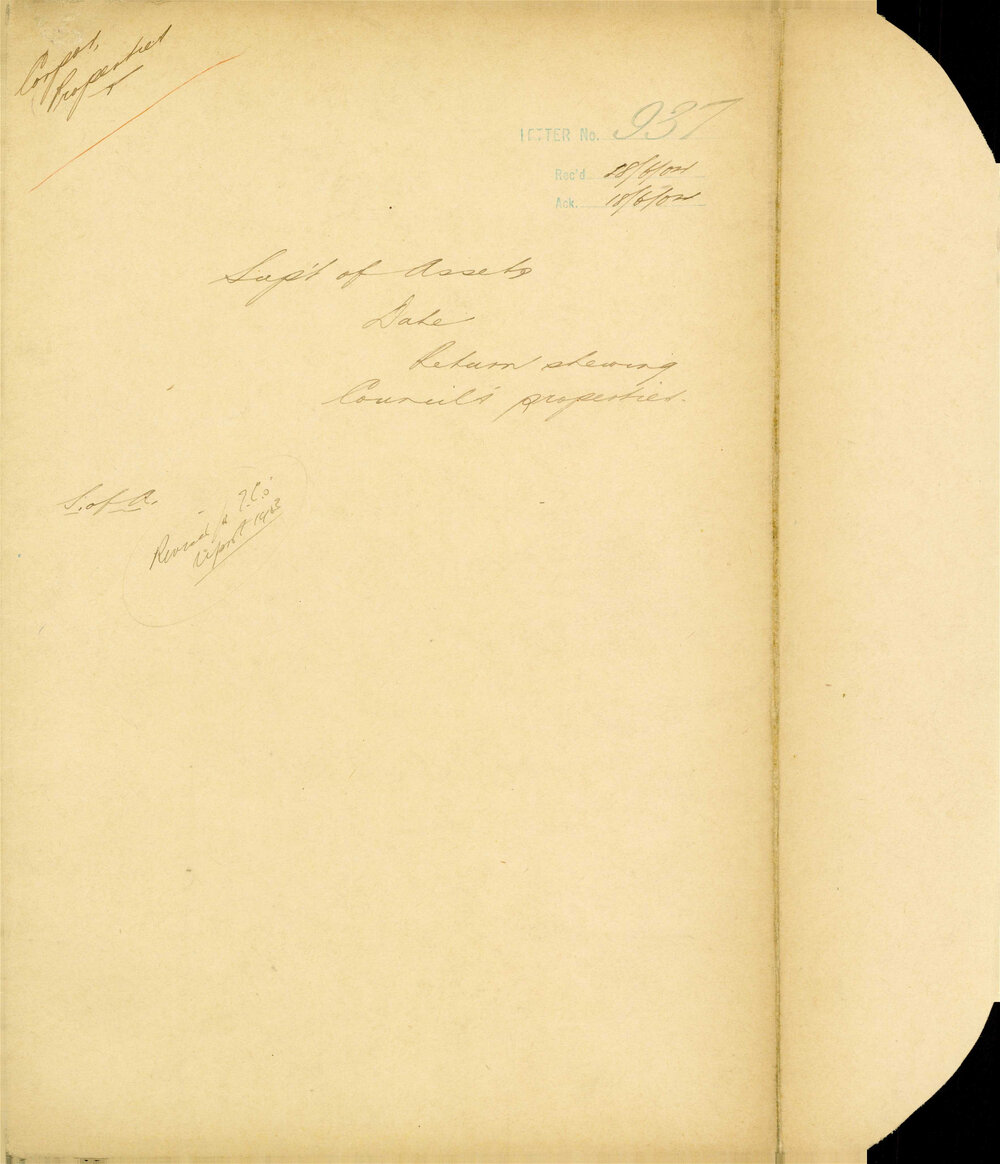 Corpor.
Properties
LETTER No. 937
Rec'd 18/6/02
Ack. 18/6/02
Sup't of Assets
Date
Return shewing
Council's properties.
S. of A.
Revised
April 1903